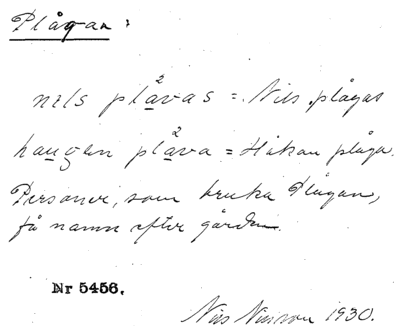 Plågan:
nils plåvas = Nils plågas
haugen plåva = Håkan plåga.
Personer, som bruka Plågan,
få namn efter gården.
Nr 5456.
Nils Nilsson 1930.